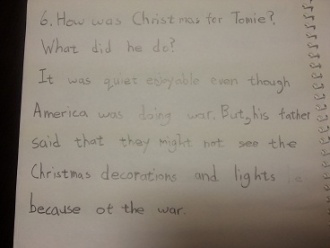 6. How was Christmas for Tomie?
What did he do?
It was quiet enjoyable even though
America was doing war. But, his father
said that they might not see the
Christmas decorations and lights
because of the war.